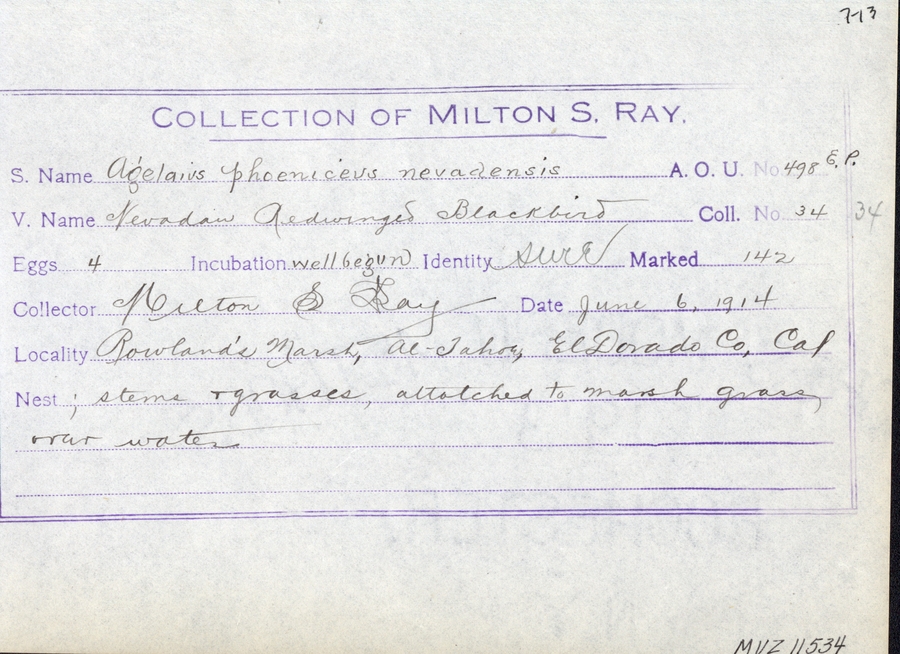 7-13
COLLECTION OF MILTON S. RAY.
S. Name Agelaius phoeniceus nevadensis A. O. U. No 498 E. P.
V. Name Nevadan Redwinged Blackbird Coll. No. 34 34
Eggs 4 Incubation well begun Identity sure Marked 142
Collector Milton S Ray Date June 6, 1914
Locality Rowland's Marsh, Al-Tahoe, El Dorado Co, Cal
Nest ; stems + grasses, attatched to marsh grass,
over water
MVZ 11534